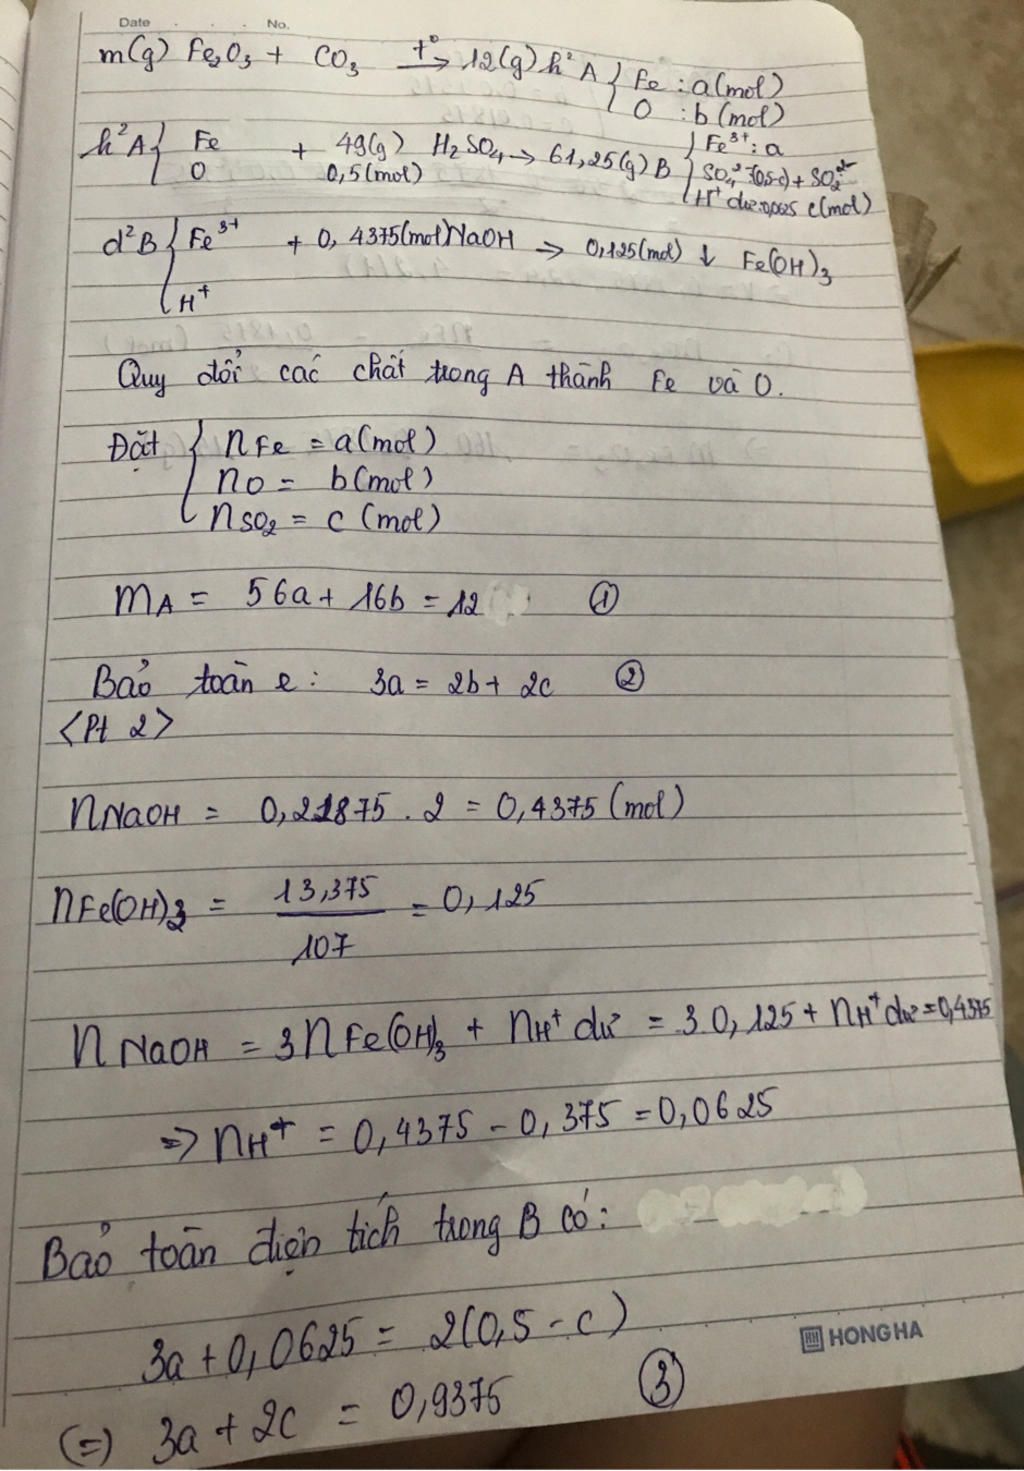 Date . . . No.
m(g) Fe₂O₃ + CO₃ t°→ 12(g) h² A { Fe : a(mol)
O : b(mol)
h²A { Fe + 49(g) H₂SO₄ → 61,25(g) B { Fe³⁺: a
O 0,5(mol) SO₄²⁻(0,5-c) + SO₂
H⁺ dư: c(mol)
d²B { Fe³⁺ + 0,4375(mol) NaOH → 0,125(mol) ↓ Fe(OH)₃
H⁺
Quy đổi các chất trong A thành Fe và O.
Đặt { nFe = a(mol)
nO = b(mol)
nSO₂ = c (mol)
mA = 56a + 16b = 12 ①
Bảo toàn e: 3a = 2b + 2c ②
<Pt 2>
nNaOH = 0,21875 . 2 = 0,4375 (mol)
nFe(OH)₃ = 13,375 / 107 = 0,125
nNaOH = 3nFe(OH)₃ + nH⁺ dư = 3.0,125 + nH⁺ dư = 0,4375
=> nH⁺ = 0,4375 - 0,375 = 0,0625
Bảo toàn điện tích trong B có:
3a + 0,0625 = 2(0,5 - c)
(=) 3a + 2c = 0,9375 ③
HONG HA